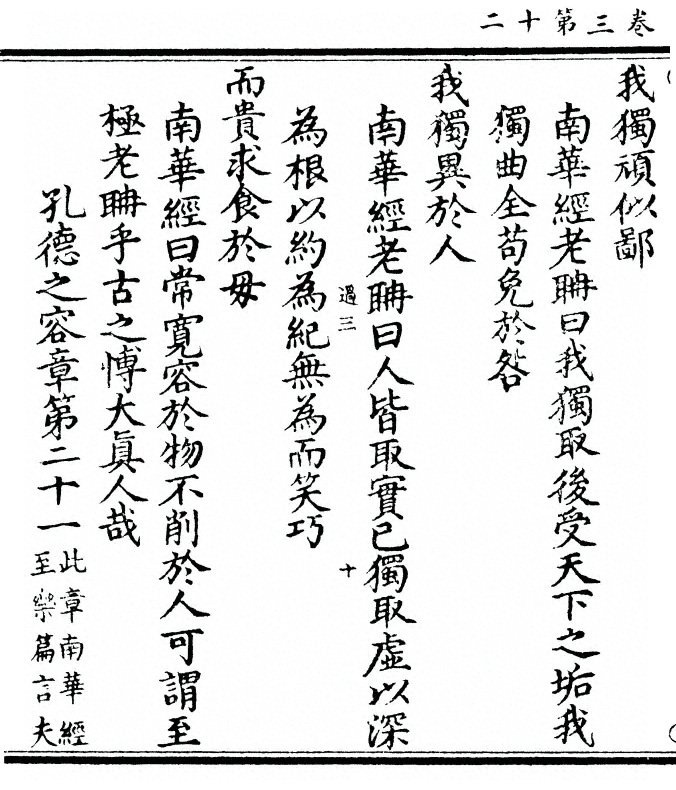 卷三第十二
我獨頑似鄙
南華經老聃曰我獨取後受天下之垢我
獨曲全苟免於咎
我獨異於人
南華經老聃曰人皆取實已獨取虛以深
過三
十
為根以約為紀無為而笑巧
而貴求食於毋
南華經曰常寬容於物不削於人可謂至
極老聃乎古之博大眞人哉
孔德之容章第二十一
此章南華經
至樂篇言夫